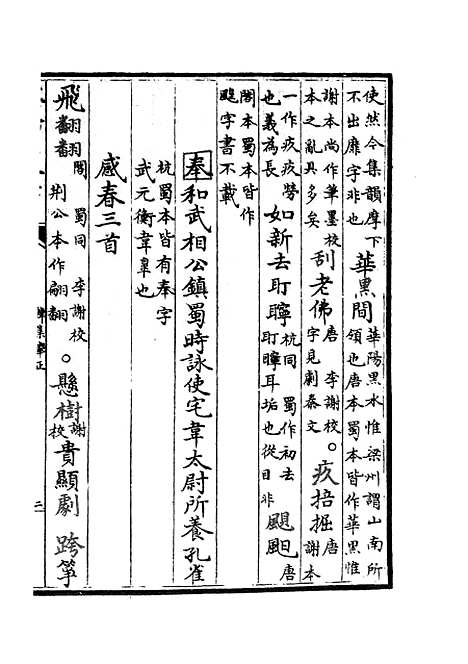 使然今集韻摩下
不出靡字非也
華黑間
華陽黑水惟梁州謂山南所
領也唐本蜀本皆作華黑惟
謝本尚作筆墨校
本之亂具多矣
刮老佛
唐 李謝校
字見劇秦文
。疚掊掘
唐
謝本
一作疚疚勞
也義為長
如新去耵聹
杭同 蜀作初去
耵聹耳垢也從目非
唐
閣本蜀本皆作
字書不載
奉和武相公鎮蜀時詠使宅韋太尉所養孔雀
杭蜀本皆有奉字
武元衡韋皋也
感春三首
飛翻翻
閣 蜀同 李謝校
荆公本作翩翻
。懸樹
謝
校
貴顯劇
跨箏
韓集舉正
二